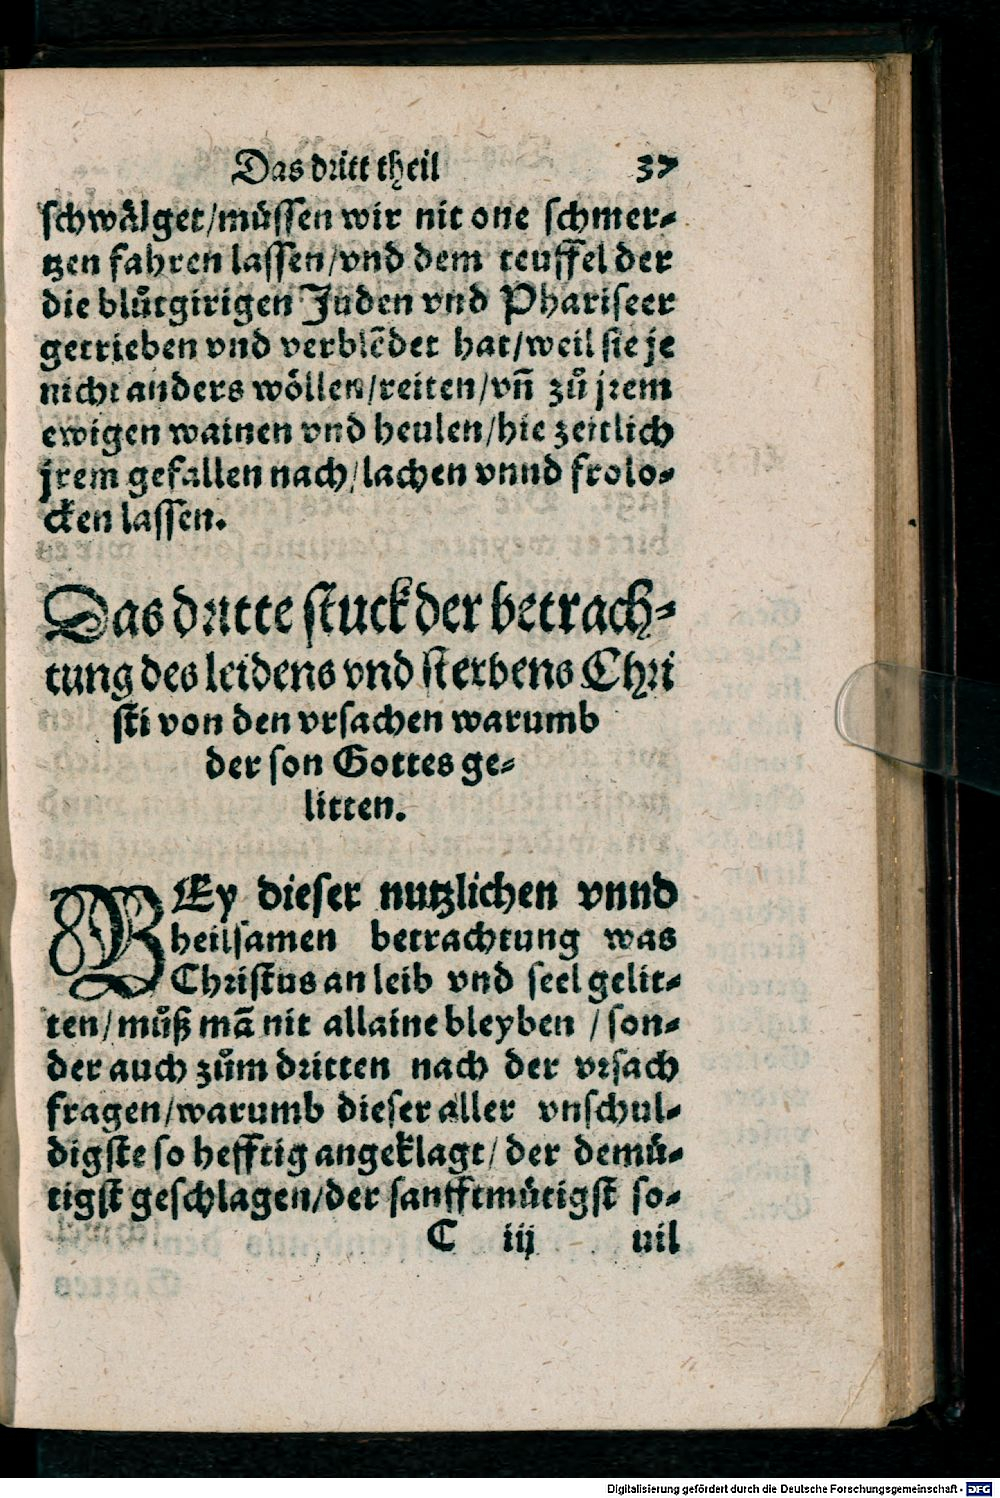 Das dritt theil 37
schwålget/můssen wir nit one schmer-
tzen fahren lassen/vnd dem teuffel der
die blůtgirigen Juden vnd Phariseer
getrieben vnd verblēdet hat/weil sie je
nicht anders wöllen/reiten/vn̄ zů jrem
ewigen wainen vnd heulen/hie zeitlich
jrem gefallen nach/lachen vnnd frolo-
cken lassen.
Das dritte stuck der betrach-
tung des leidens vnd sterbens Chri
sti von den vrsachen warumb
der son Gottes ge-
litten.
BEy dieser nutzlichen vnnd
heilsamen betrachtung was
Christus an leib vnd seel gelit-
ten/můß mā nit allaine bleyben /son-
der auch zům dritten nach der vrsach
fragen/warumb dieser aller vnschul-
digste so hefftig angeklagt/der demů-
tigst geschlagen/der sanfftmůtigst so-
C iij uil
Digitalisierung gefördert durch die Deutsche Forschungsgemeinschaft - DFG